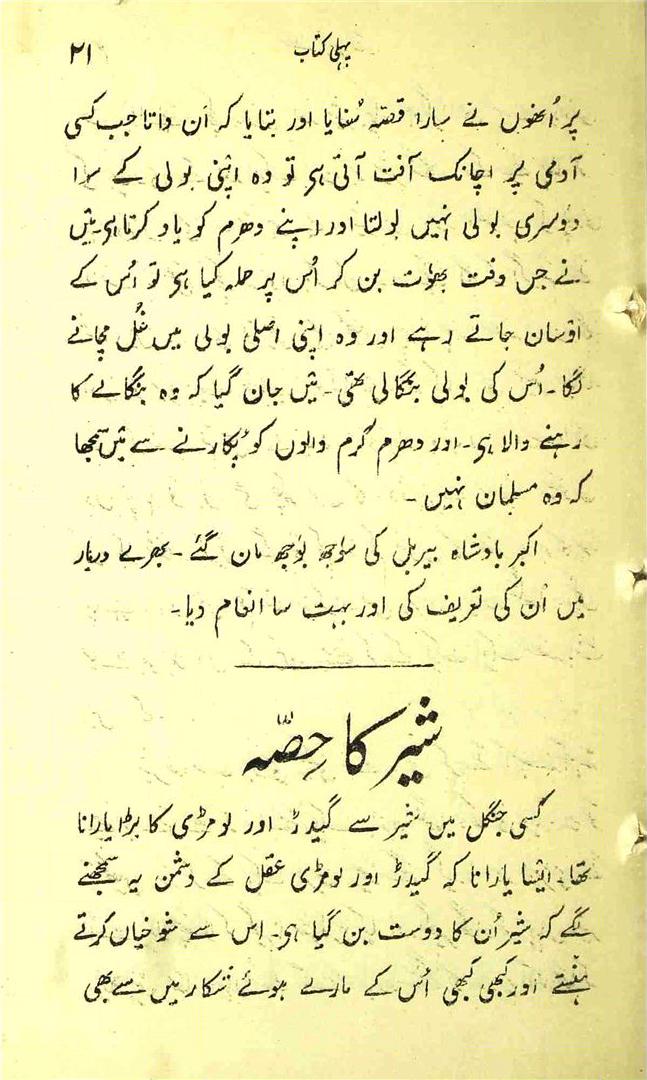 پہلی کتاب ۲۱
پر اُنھوں نے سارا قصّہ سُنایا اور بتایا کہ اَن داتا جب کسی
آدمی پر اچانک آفت آتی ہی تو وہ اپنی بولی کے سوا
دوسری بولی نہیں بولتا اور اپنے دھرم کو یاد کرتا ہی۔ میں
نے جس وقت بھوت بن کر اُس پر حملہ کیا ہی تو اُس کے
اوسان جاتے رہے اور وہ اپنی اصلی بولی میں غُل مچانے
لگا۔ اُس کی بولی بنگالی تھی۔ میں جان گیا کہ وہ بنگالے کا
رہنے والا ہی۔ اور دھرم کرم والوں کو پکارنے سے میں سمجھا
کہ وہ مسلمان نہیں۔
اکبر بادشاہ بیربل کی سوجھ بوجھ مان گئے۔ بھرے دربار
میں اُن کی تعریف کی اور بہت سا انعام دیا۔
شیر کا حِصّہ
کسی جنگل میں شیر سے گیدڑ اور لومڑی کا بڑا یارانا
تھا۔ ایسا یارانا کہ گیدڑ اور لومڑی عقل کے دشمن یہ سمجھنے
لگے کہ شیر اُن کا دوست بن گیا ہی۔ اس سے شوخیاں کرتے
ہنستے اور کبھی کبھی اُس کے مارے ہوئے شکار میں سے بھی